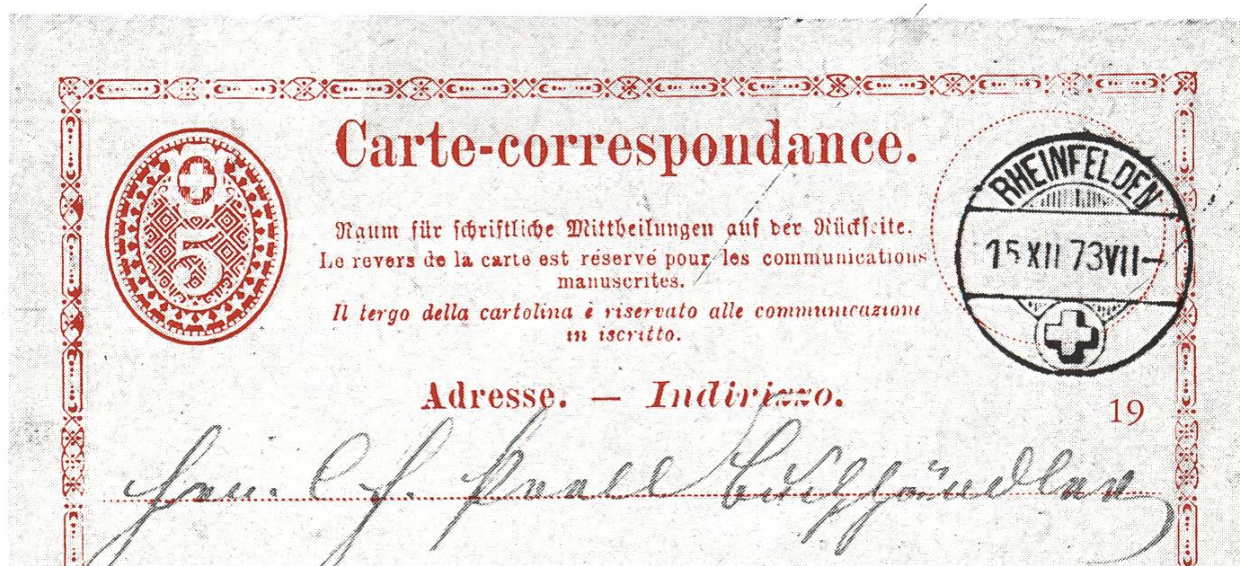 Carte-correspondance.
5
Raum für schriftliche Mittheilungen auf der Rückseite.
Le revers de la carte est réservé pour les communications
manuscrites.
Il tergo della cartolina è riservato alle communicazioni
in iscritto.
RHEINFELDEN
15 XII 73 VII–
Adresse. — Indirizzo.
19